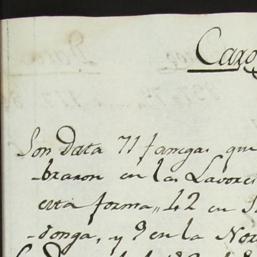 Caxo
Son Data 71 fanegas que
braron en las Lavores
esta forma, 42 en
donga, y 9 en la No